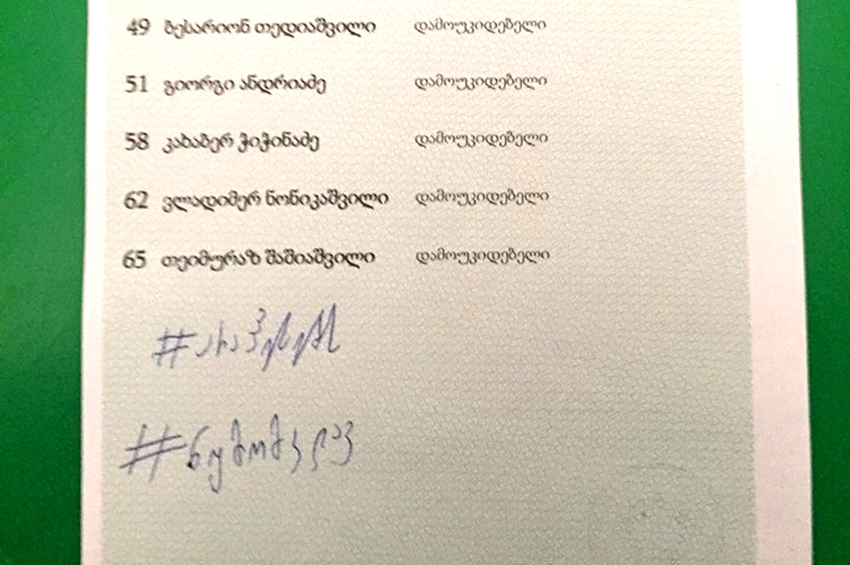 49 ბესარიონ თედიაშვილი დამოუკიდებელი
51 გიორგი ანდრიაძე დამოუკიდებელი
58 კახაბერ ჭიჭინაძე დამოუკიდებელი
62 ვლადიმერ ნონიკაშვილი დამოუკიდებელი
65 თეიმურაზ შაშიაშვილი დამოუკიდებელი
#არაჰესებს
#ნუმომკლავ